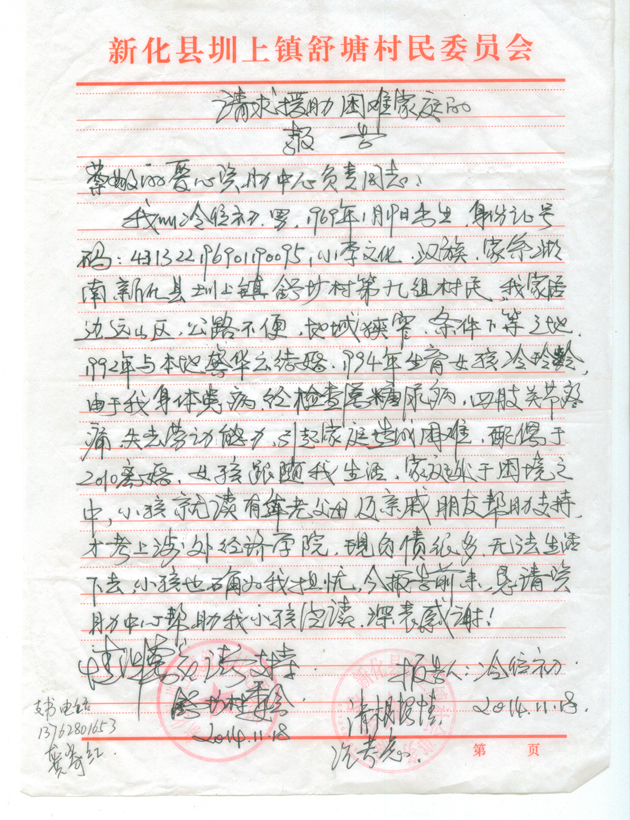 新化县圳上镇舒塘村民委员会
请求援助困难家庭的
报告
敏的爱心资助中心负责同志:
我叫冷信初,男,1969年1月19日出生,身份证号
码:431322196901190095,小学文化,汉族,家条湖
南新化县圳上镇舒塘村第九组村民,我家居
边远山区,公路不便,地域狭窄,条件下等之地,
1992年与本地 华云结婚,1994年生育女孩冷玲,
由于我身体患病,经检查 糖尿病,四肢关节疼
痛,失去劳动能力,引起家庭造成困难,配偶于
2010离婚,女孩跟随我生活,家庭 于困境之
中,小孩就读有年老父母及亲戚朋友帮助支持,
才考上涉外经济学院,现负债很多,无法生活
下去,小孩也确为我担忧,今报告前来,恳请资
助中心帮助我小孩 读,深表感谢!
情况 实,请支持.
舒塘村委会
2014.11.18
报告人:冷信初
2014.11.18
支书电话
13762801653
第 页